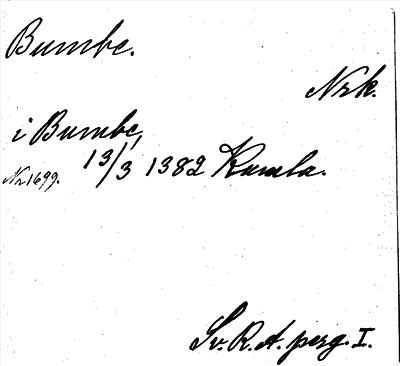 Bumbe.
Nrk.
i Bumbe,
Nr 1699. 13/3 1382 Kumla.
Sv. R. A. perg. I.